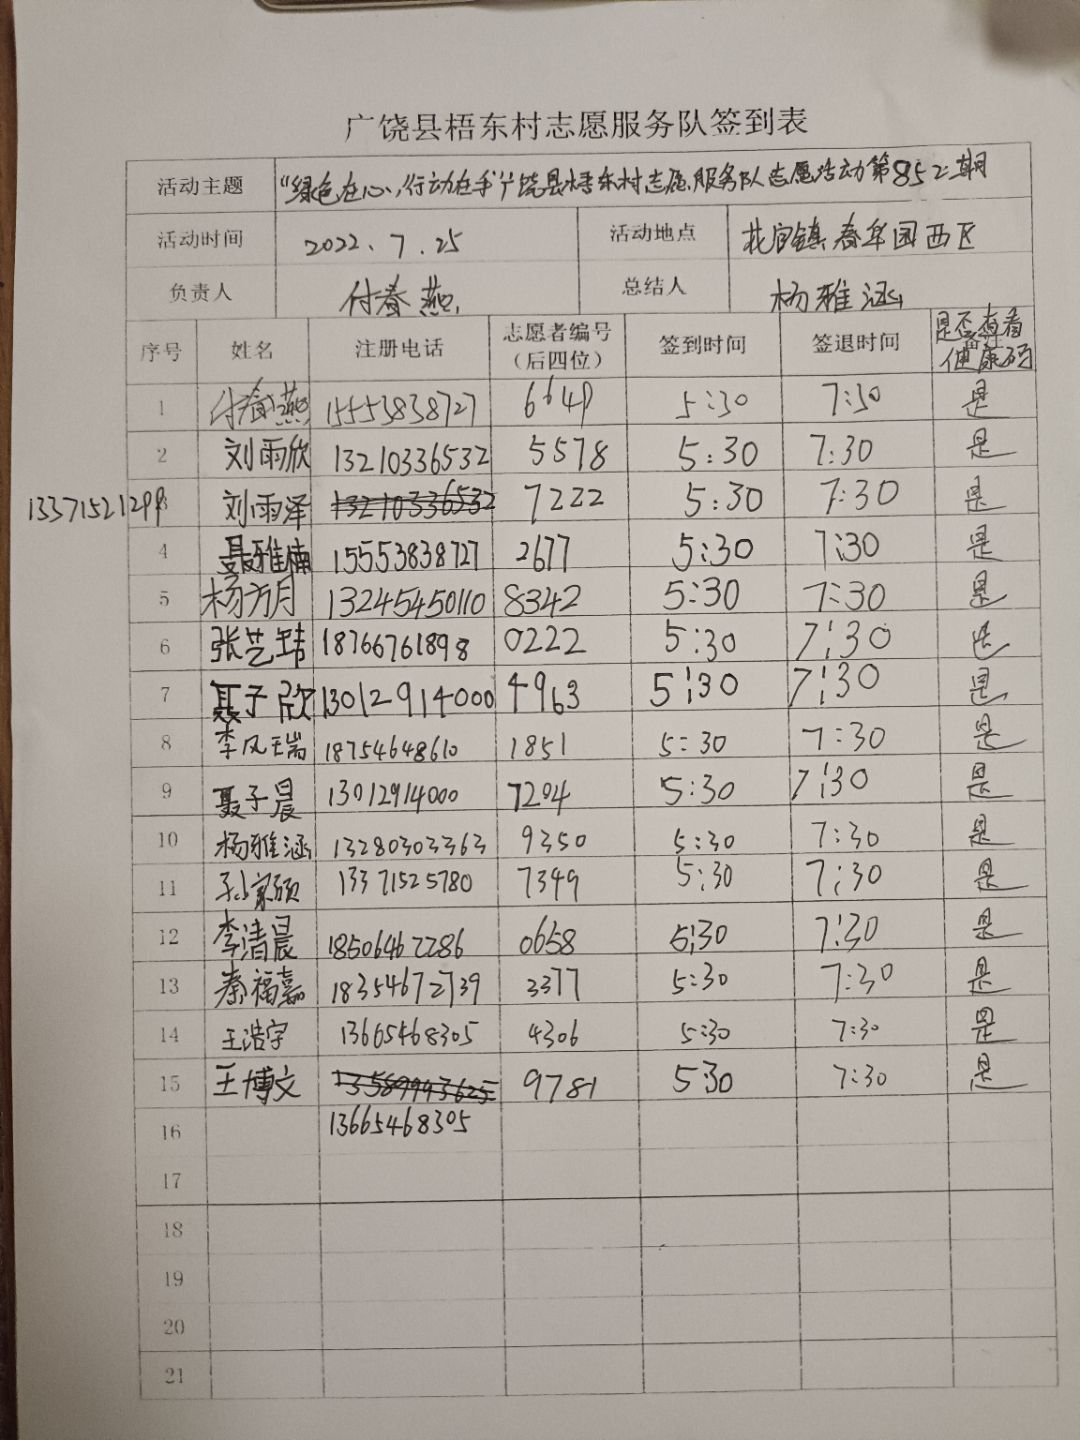 广饶县梧东村志愿服务队签到表
活动主题 "绿色在心,行动在手"广饶县梧东村志愿服务队志愿活动第852期
活动时间 2022.7.25 活动地点 花官镇春华园西区
负责人 付春燕 总结人 杨雅涵
序号 姓名 注册电话 志愿者编号(后四位) 签到时间 签退时间 是否查看健康码
1 付春燕 15553838727 6649 5:30 7:30 是
2 刘雨欣 13210336532 5578 5:30 7:30 是
13371521299 3 刘雨泽 13210336532 7222 5:30 7:30 是
4 聂雅楠 15553838727 2677 5:30 7:30 是
5 杨方月 13245450110 8342 5:30 7:30 是
6 张艺玮 18766761898 0222 5:30 7:30 是
7 聂子欣 13012914000 4963 5:30 7:30 是
8 李风瑞 18754648610 1851 5:30 7:30 是
9 聂子晨 13012914000 7204 5:30 7:30 是
10 杨雅涵 13280303363 9350 5:30 7:30 是
11 孙家硕 13371525780 7349 5:30 7:30 是
12 李清晨 18506462286 0658 5:30 7:30 是
13 秦福嘉 18354672739 3377 5:30 7:30 是
14 王浩宇 13665468305 4306 5:30 7:30 是
15 王博文 13589943625 9781 530 7:30 是
16 13665468305
17
18
19
20
21